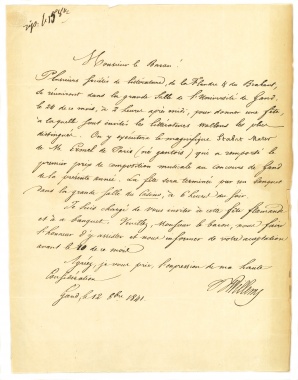 Monsieur le Baron!
Plusieurs sociétés de littérature, de la Flandre & du Brabant,
se réuniront dans la grande Salle de l'Université de Gand,
le 24 de ce mois, à 2 heures après midi, pour donner une fête,
à laquelle sont invités les littérateurs wallons les plus
distingués. On y exécutera le magnifique Stabat Mater
de M. de Paris, né gantois, qui a remporté le
premier prix de composition musicale au concours de Gand
de la présente année. La fête sera terminée par un banquet
dans la grande Salle du Casino, à 6 heures du soir.
Je suis chargé de vous inviter à cette fête flamande
et à ce banquet. Veuillez, Monsieur le baron, nous faire
l'honneur d'y assister et nous informer de votre acceptation
avant le 20 de ce mois.
Agréez, je vous prie, l'expression de ma haute
Considération
Gand, le 12 8bre 1841.
Willems